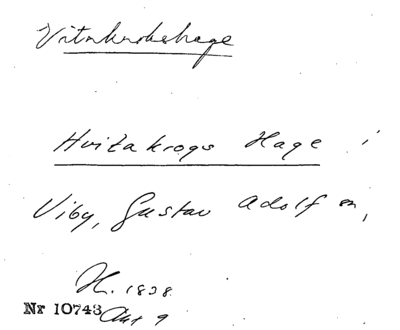 Vitakrokshage
Hvitakrogs Hage i
Viby, Gustav Adolf sn,
H. 1838
Nr 10743 Akt 9